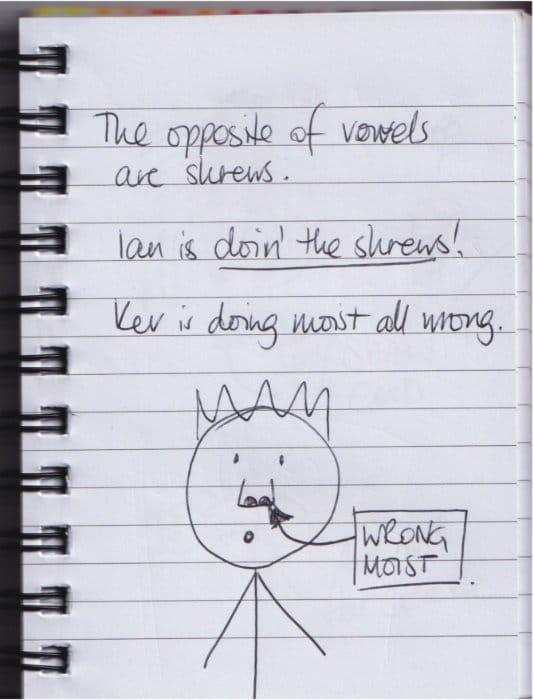 The opposite of vowels
are shrews.
Ian is doin' the shrews!
Kev is doing moist all wrong.
WRONG
MOIST